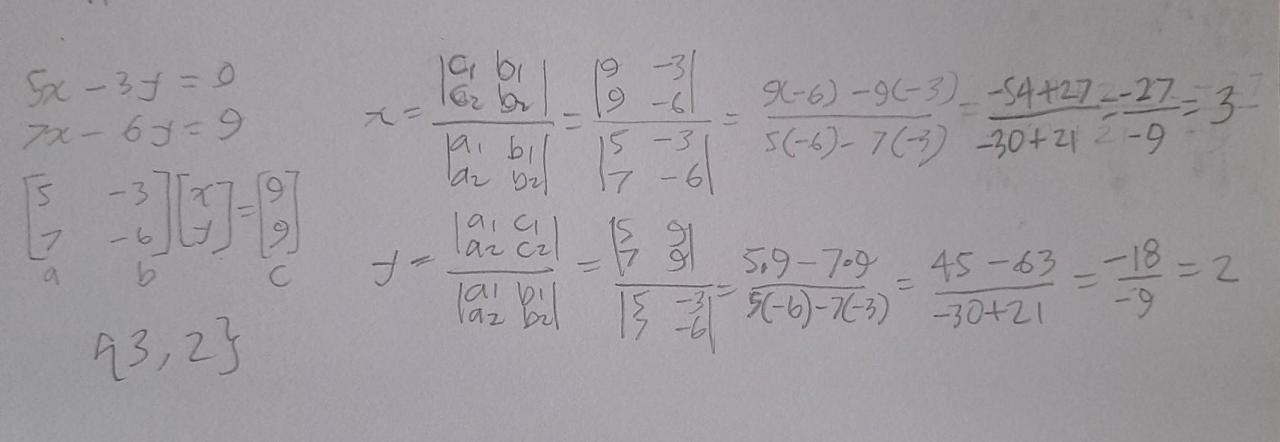 5x - 3y = 9
7x - 6y = 9
[5 -3; 7 -6] [x; y] = [9; 9]
a b c
{3, 2}
x = |c₁ b₁; c₂ b₂| / |a₁ b₁; a₂ b₂| = |9 -3; 9 -6| / |5 -3; 7 -6| = (9(-6) - 9(-3)) / (5(-6) - 7(-3)) = (-54+27) / (-30+21) = -27 / -9 = 3
y = |a₁ c₁; a₂ c₂| / |a₁ b₁; a₂ b₂| = |5 9; 7 9| / |5 -3; 7 -6| = (5.9 - 7.9) / (5(-6) - 7(-3)) = (45 - 63) / (-30+21) = -18 / -9 = 2